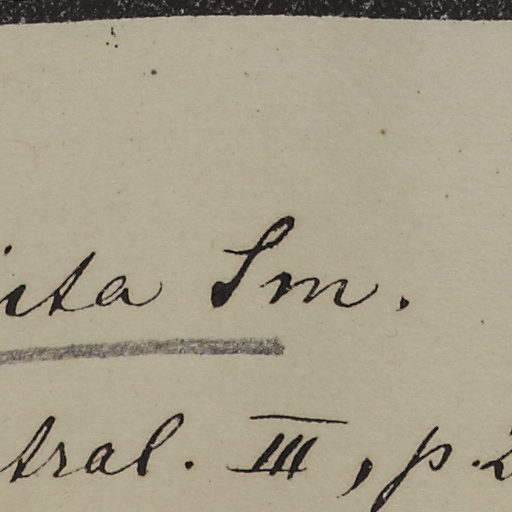 ita Sm.
tral. III, p. 2